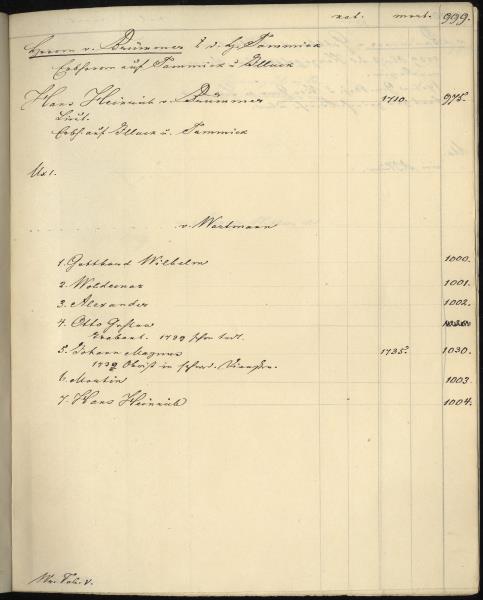 nat. mort. 999.
Herrn v. Brümmer z. d. H. Tammick
Erbherrn auf Tammick u Illuck
Hans Heinrich v. Brümmer 1710. 975.
Lieut.
Erbh auf Illuck u. Tammick
Ux 1.
v. Wartmann
1. Gotthard Wilhelm 1000.
2. Woldemar 1001.
3. Alexander 1002.
4. Otto Gustav
1739 schon todt.
5. Johann Magnus 1735. 1030.
1732 Obrist in schwed. Diensten.
6. Martin 1003.
7. Hans Heinrich 1004.